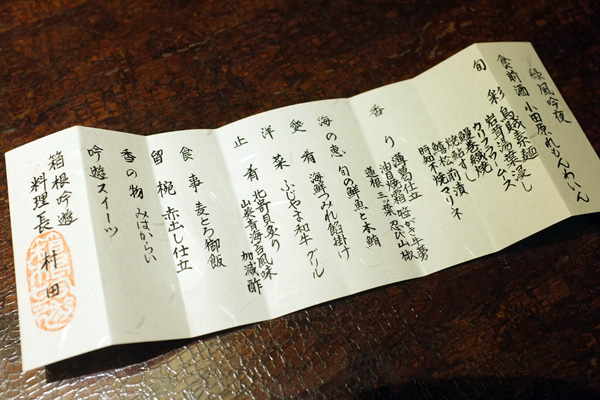 緑風吟夜
食前酒 小田原れもんわいん
旬彩 鳥酸素麺
岩茸湯葉浸し
クリームチーズ
鰻巻繊焼
焼鮎前漬
鱚松風
時知不焼マリネ
香り 薄葛仕立
油目焼霜 笹がき牛蒡
蓮根 三ツ葉 忍び山椒
海の恵 旬の鮮魚と本鮪
炙肴 海鮮つみれ餡掛け
洋菜 ふじやま和牛グリル
止肴 北寄貝炙り
山葵青海苔風味
加減酢
食事 麦とろ御飯
留椀 赤出し仕立
香の物 みはからい
吟遊スイーツ
箱根吟遊
料理長 村田